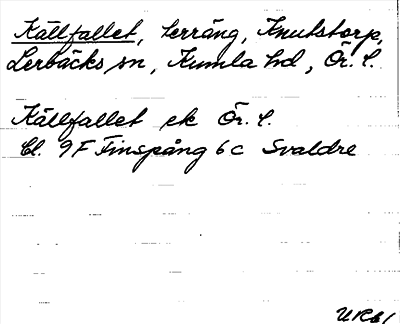 Källfallet, terräng, Knutstorp,
Lerbäcks sn, Kumla hd, Ör. L.
Källfallet ek Ör. L.
Bl. 9F Finspång 6c Svaldre